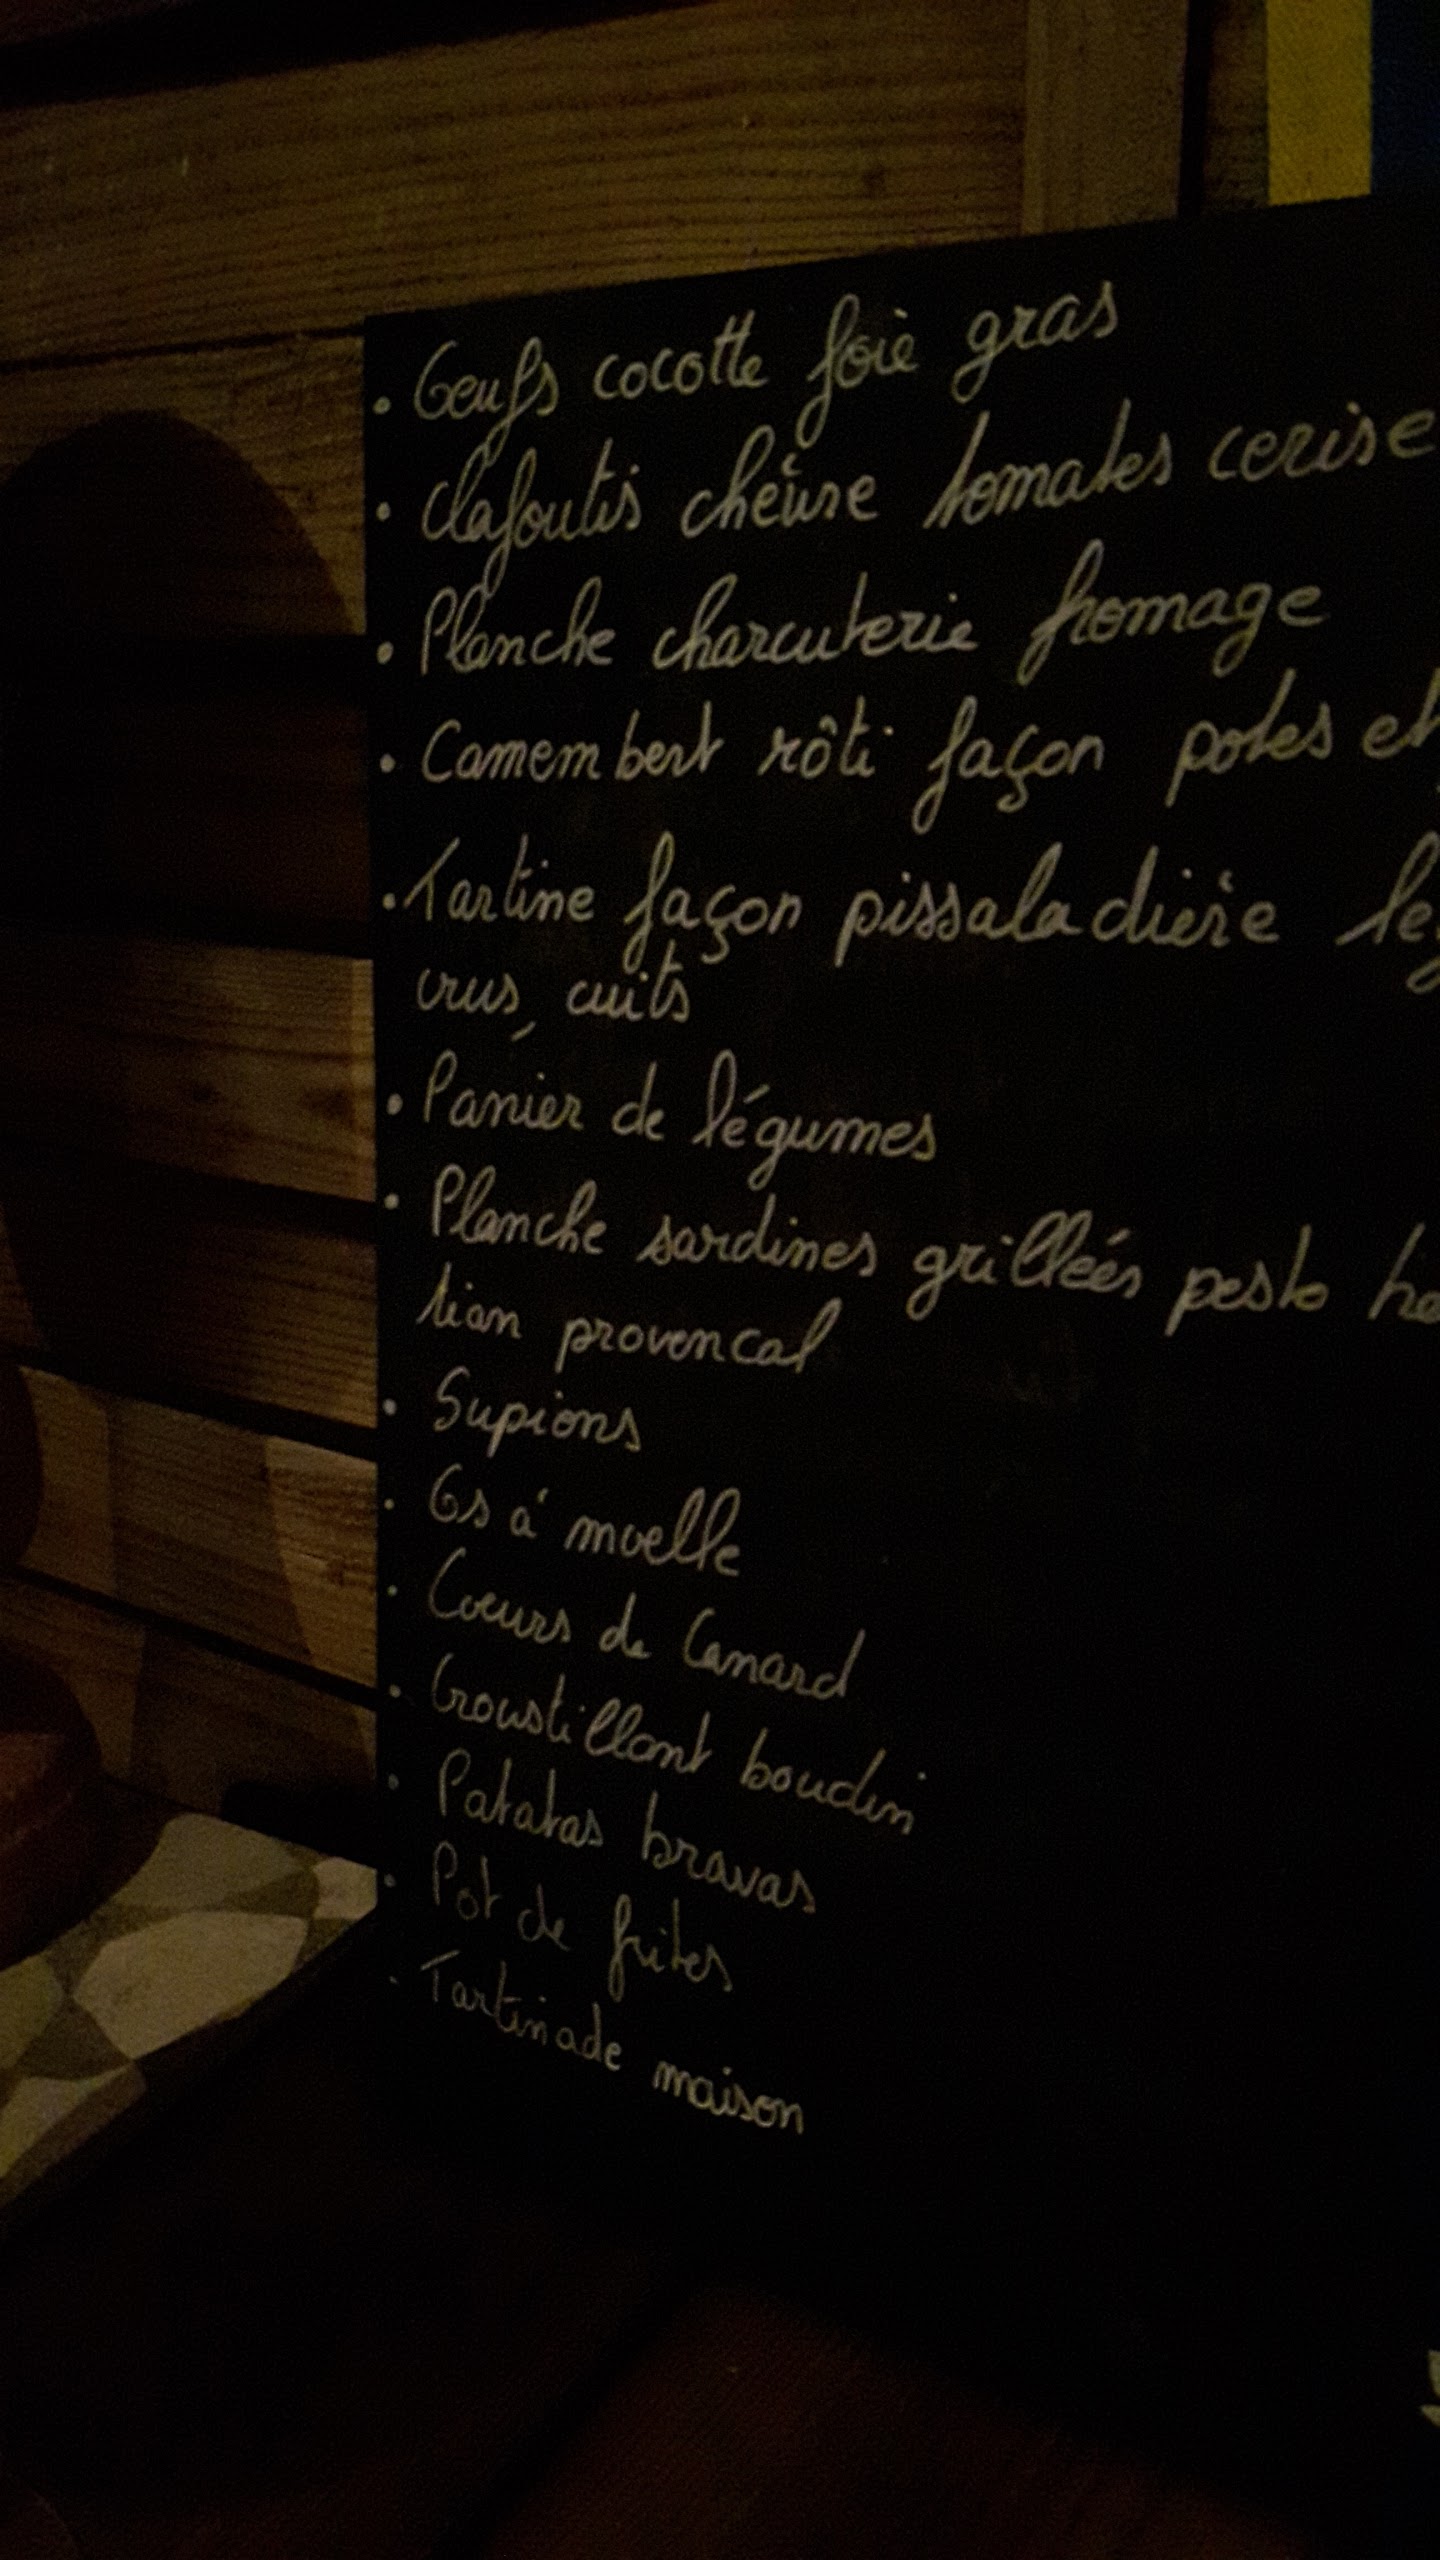 • Oeufs cocotte foie gras
• Clafoutis chèvre tomates cerise
• Planche charcuterie fromage
• Camembert rôti façon potes et
• Tartine façon pissaladière
crus, cuits
• Panier de légumes
• Planche sardines grillées pesto
tian provencal
• Supions
• Os à moelle
• Coeurs de Canard
• Croustillant boudin
• Patatas bravas
• Pot de frites
• Tartinade maison